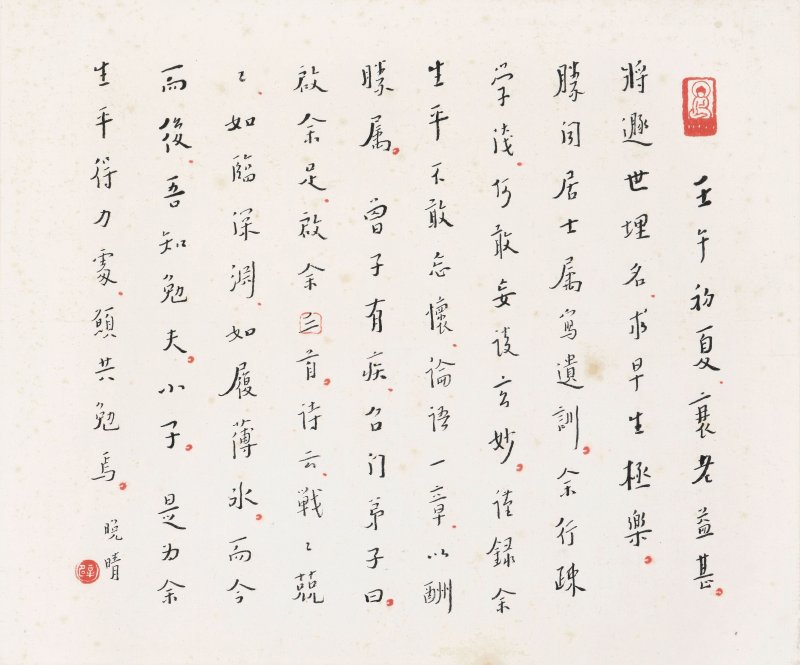 壬午初夏、衰老益甚。
將遯世埋名、求早生極樂。
勝聞居士属寫遺訓。余行踈
学淺、何敢妄談玄妙。谨録余
生平不敢忘懷、論語一章、以酬
勝属。曾子有疾、召门弟子曰。
啟余足、啟余三首。诗云、戰〻兢
〻、如臨深渊、如履薄氷。而今
而後、吾知勉夫。小子。是为余
生平得力處、願共勉焉。
晚晴